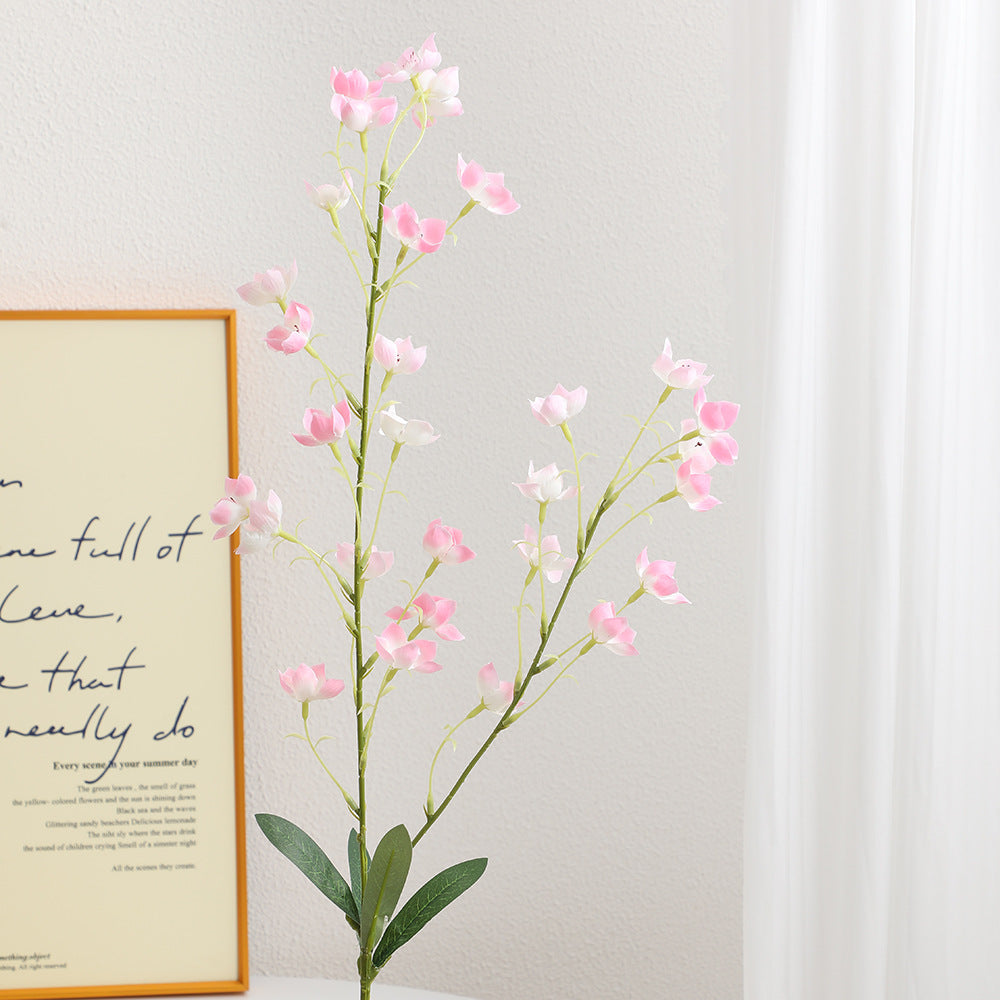 full of
that
do
Every scene in your summer day
The green leaves , the smell of grass
the yellow- colored flowers and the sun is shining down
Black sea and the waves
Glittering sandy beachers Delicious lemonade
The niht sly where the stars drink
the sound of children crying Smell of a simmer night
All the scenes they create.
mething.object
thing. All right reserved